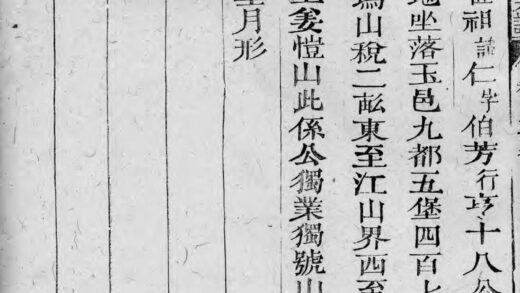 祖諱仁字伯芳行亨十八公
坐落玉邑九都五堡四百七
山稅二畝東至江山界西至
山此係公獨業獨號山
月形